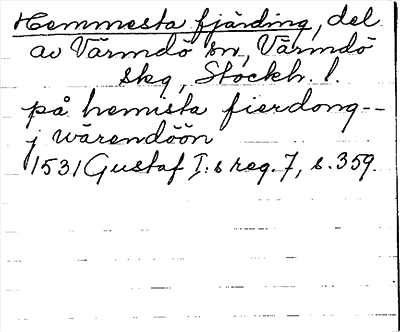 Hemmesta fjärding, del
av Värmdö sn, Värmdö
skg, Stockh. l.
på hemista fierdong--
j wärendöön
1531 Gustaf I:s reg. 7, s. 359.